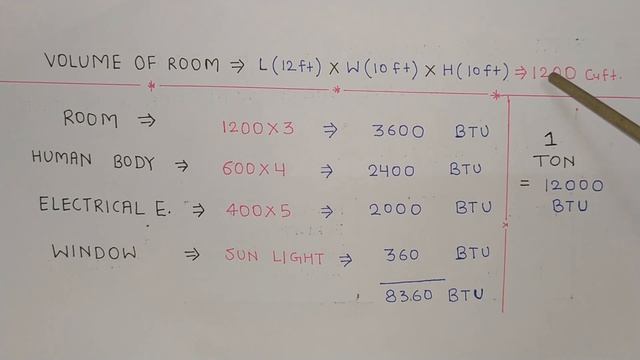 VOLUME OF ROOM ⇒ L(12ft) × W(10ft) × H(10ft) ⇒ 1200 Cuft.
ROOM ⇒ 1200×3 ⇒ 3600 BTU
HUMAN BODY ⇒ 600×4 ⇒ 2400 BTU
ELECTRICAL E. ⇒ 400×5 ⇒ 2000 BTU
WINDOW ⇒ SUN LIGHT ⇒ 360 BTU
8360 BTU
1
TON
= 12000
BTU